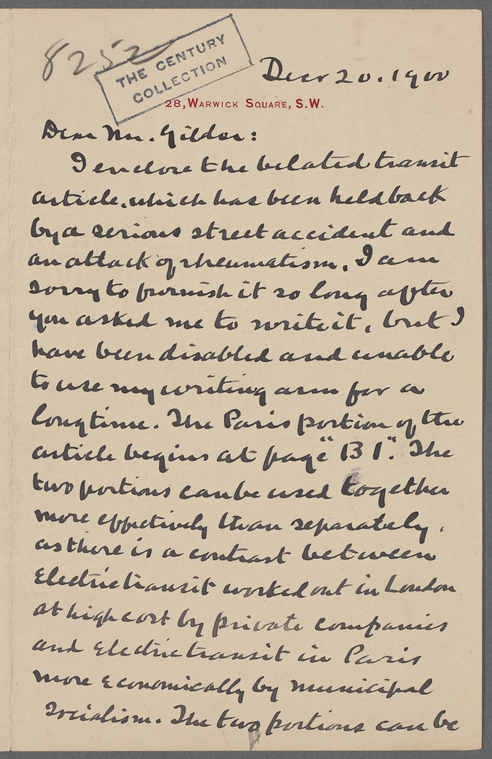 8252
THE CENTURY
COLLECTION
Decr 20. 1900
28, WARWICK SQUARE, S.W.
Dear Mr. Gilder:
I enclose the belated transit
article, which has been held back
by a serious street accident and
an attack of rheumatism. I am
sorry to furnish it so long after
you asked me to write it, but I
have been disabled and unable
to use my writing arm for a
long time. The Paris portion of the
article begins at page "B 1". The
two portions can be used together
more effectively than separately,
as there is a contrast between
Electric transit worked out in London
at high cost by private companies
and Electric transit in Paris
more economically by municipal
socialism. The two portions can be